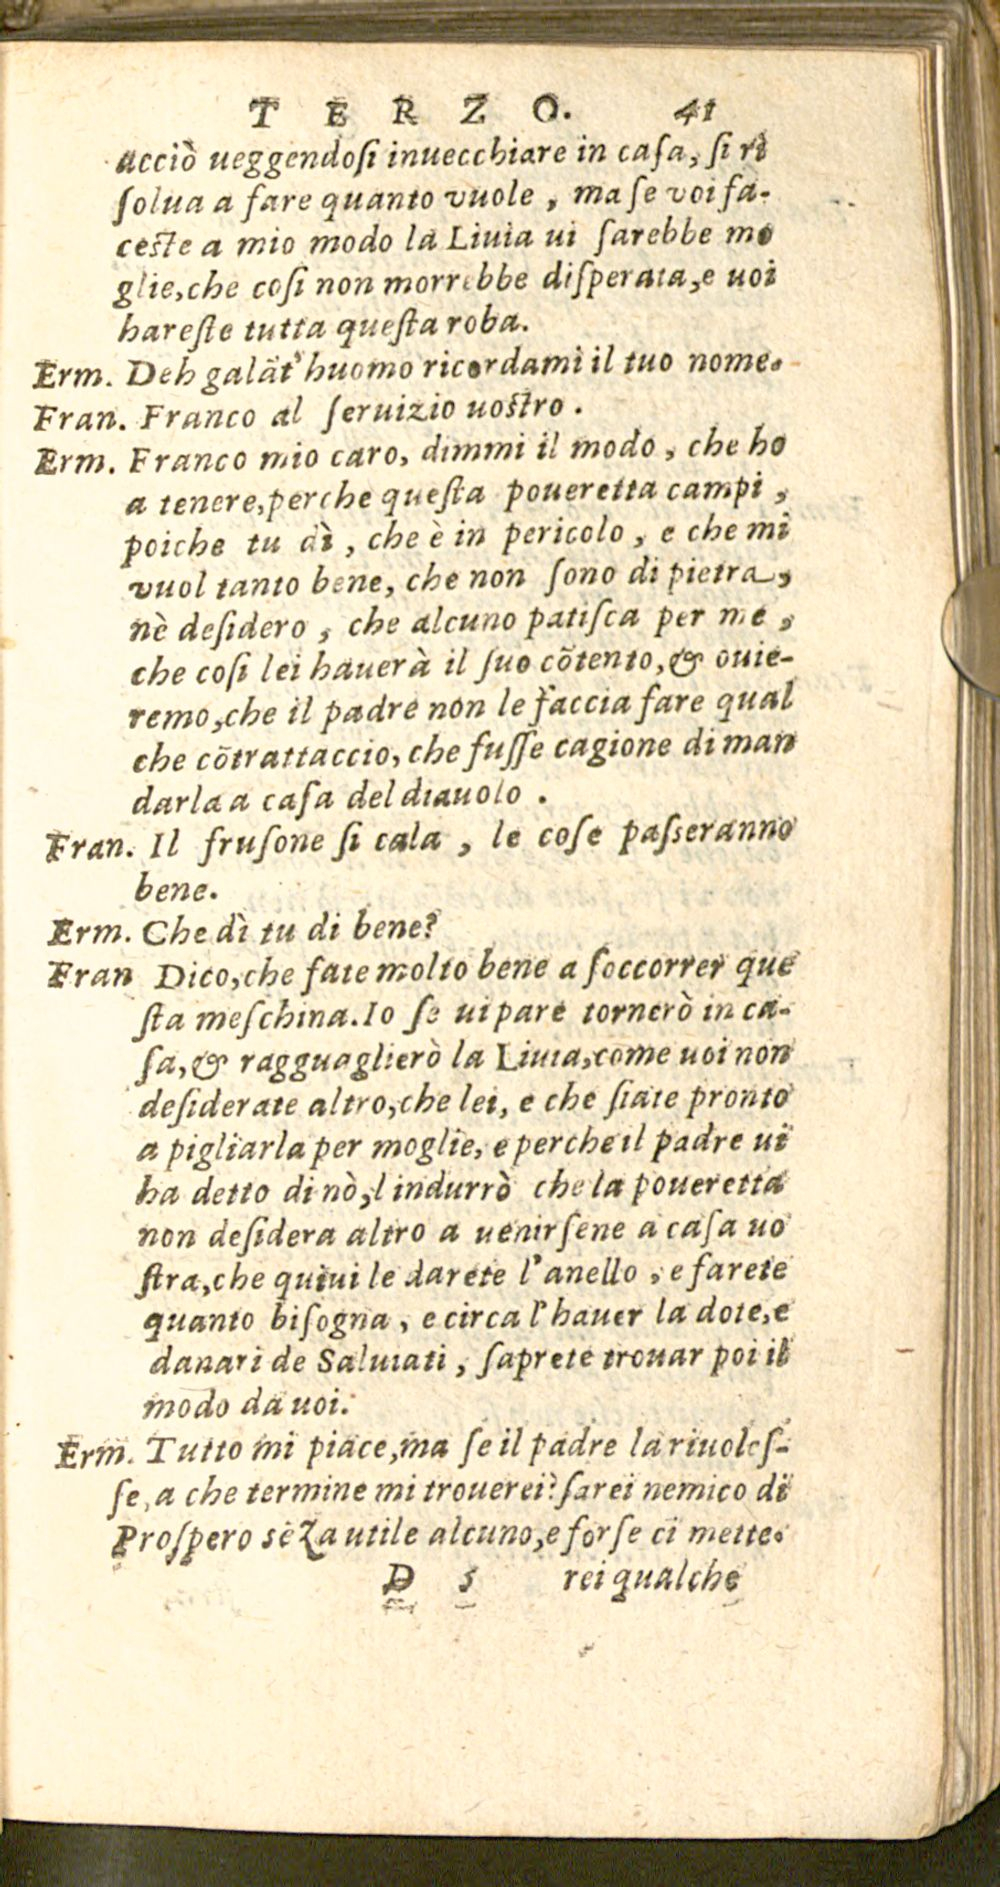 TERZO. 41
acciò ueggendosi inuecchiare in casa, si ri
solua a fare quanto vuole, ma se voi fa-
ceste a mio modo la Liuia ui sarebbe mo
glie, che cosi non morrebbe disperata, e uoi
hareste tutta questa roba.
Erm. Deh galãt'huomo ricordami il tuo nome.
Fran. Franco al seruizio uostro.
Erm. Franco mio caro, dimmi il modo, che ho
a tenere, perche questa poueretta campi,
poiche tu dì, che è in pericolo, e che mi
vuol tanto bene, che non sono di pietra,
nè desidero, che alcuno patisca per me,
che cosi lei hauerà il suo cõtento, & ouie-
remo, che il padre non le faccia fare qual
che cõtrattaccio, che fusse cagione di man
darla a casa del diauolo.
Fran. Il frusone si cala, le cose passeranno
bene.
Erm. Che dì tu di bene?
Fran Dico, che fate molto bene a soccorrer que
sta meschina. Io se ui pare tornerò in ca-
sa, & ragguaglierò la Liuia, come uoi non
desiderate altro, che lei, e che siate pronto
a pigliarla per moglie, e perche il padre ui
ha detto di nò, l indurrò che la poueretta
non desidera altro a uenirsene a casa uo
stra, che quiui le darete l'anello, e farete
quanto bisogna, e circa l'hauer la dote, e
danari de Saluiati, saprete trouar poi il
modo da uoi.
Erm. Tutto mi piace, ma se il padre la riuoles-
se, a che termine mi trouerei? sarei nemico di
Prospero sẽza utile alcuno, e forse ci mette-
D 5 rei qualche